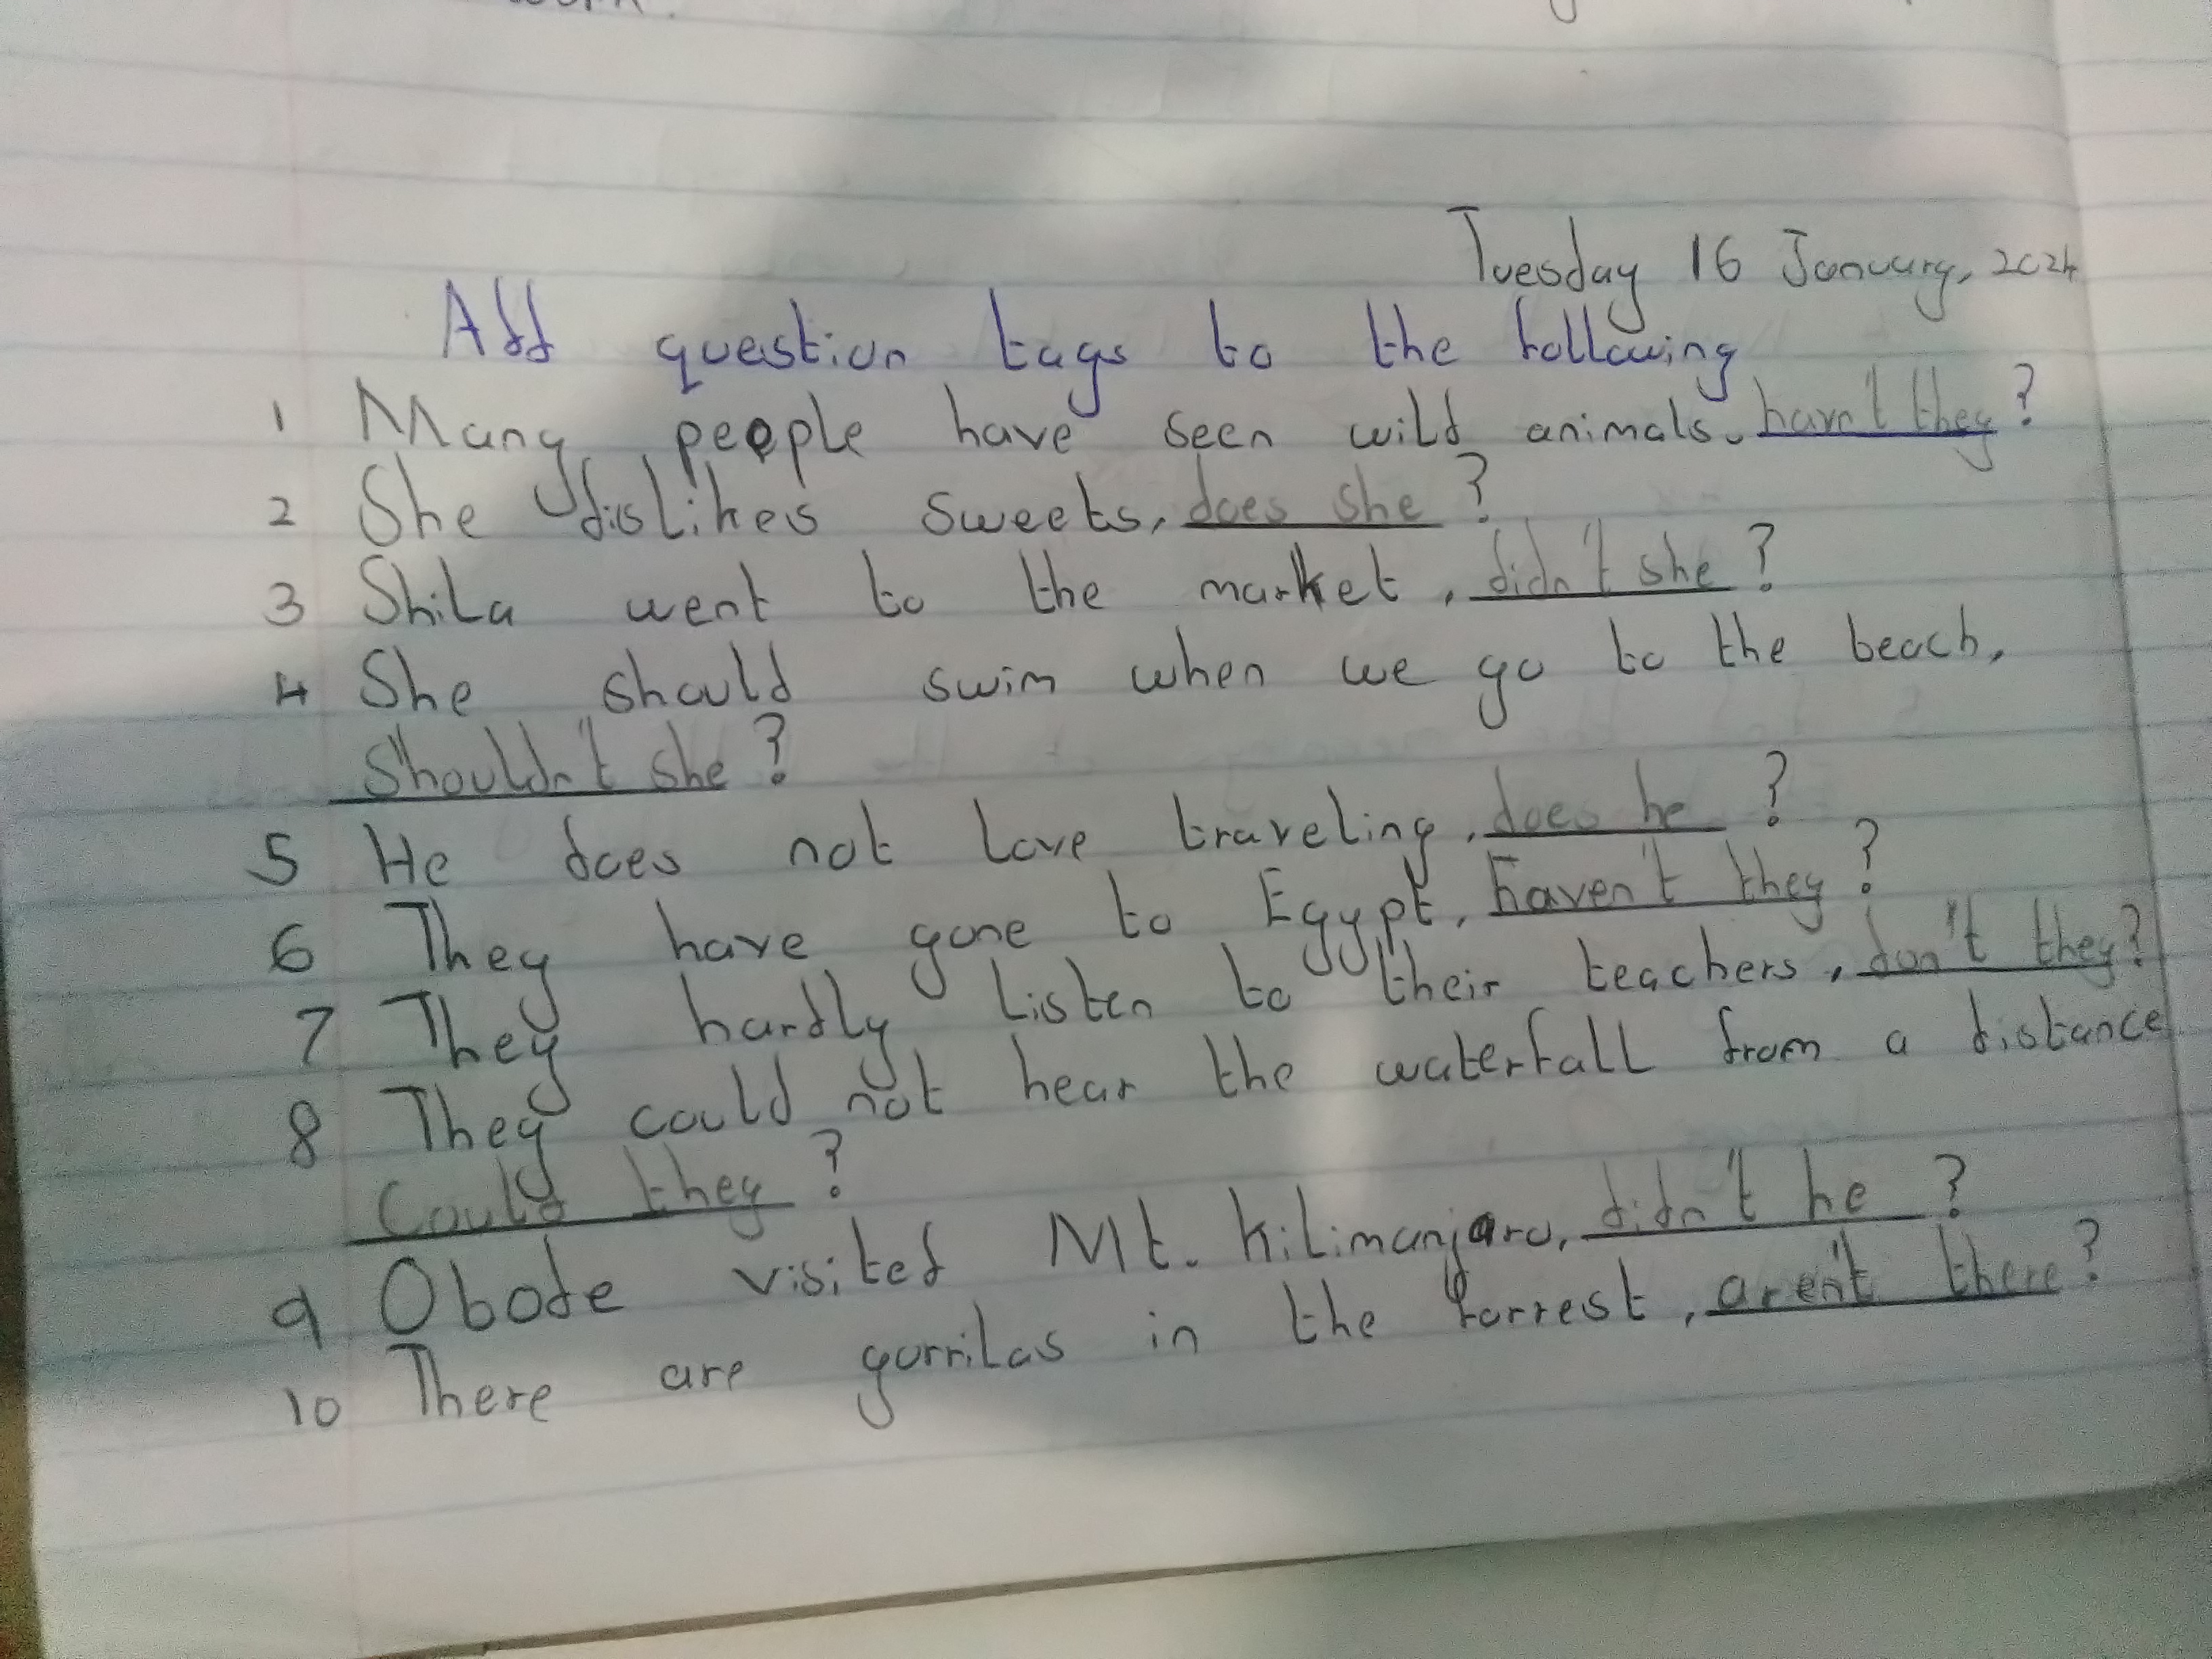 Tuesday 16 January, 2024
Add question tags to the following
1 Many people have seen wild animals. havn't they?
2 She dislikes sweets, does she?
3 Shila went to the market, didn't she?
4 She should swim when we go to the beach,
Shouldn't she?
5 He does not love traveling, does he?
6 They have gone to Egypt, haven't they?
7 They hardly listen to their teachers, don't they?
8 They could not hear the waterfall from a distance
Could they?
9 Obode visited Mt. Kilimanjaro, didn't he?
10 There are gorrilas in the forrest, aren't there?